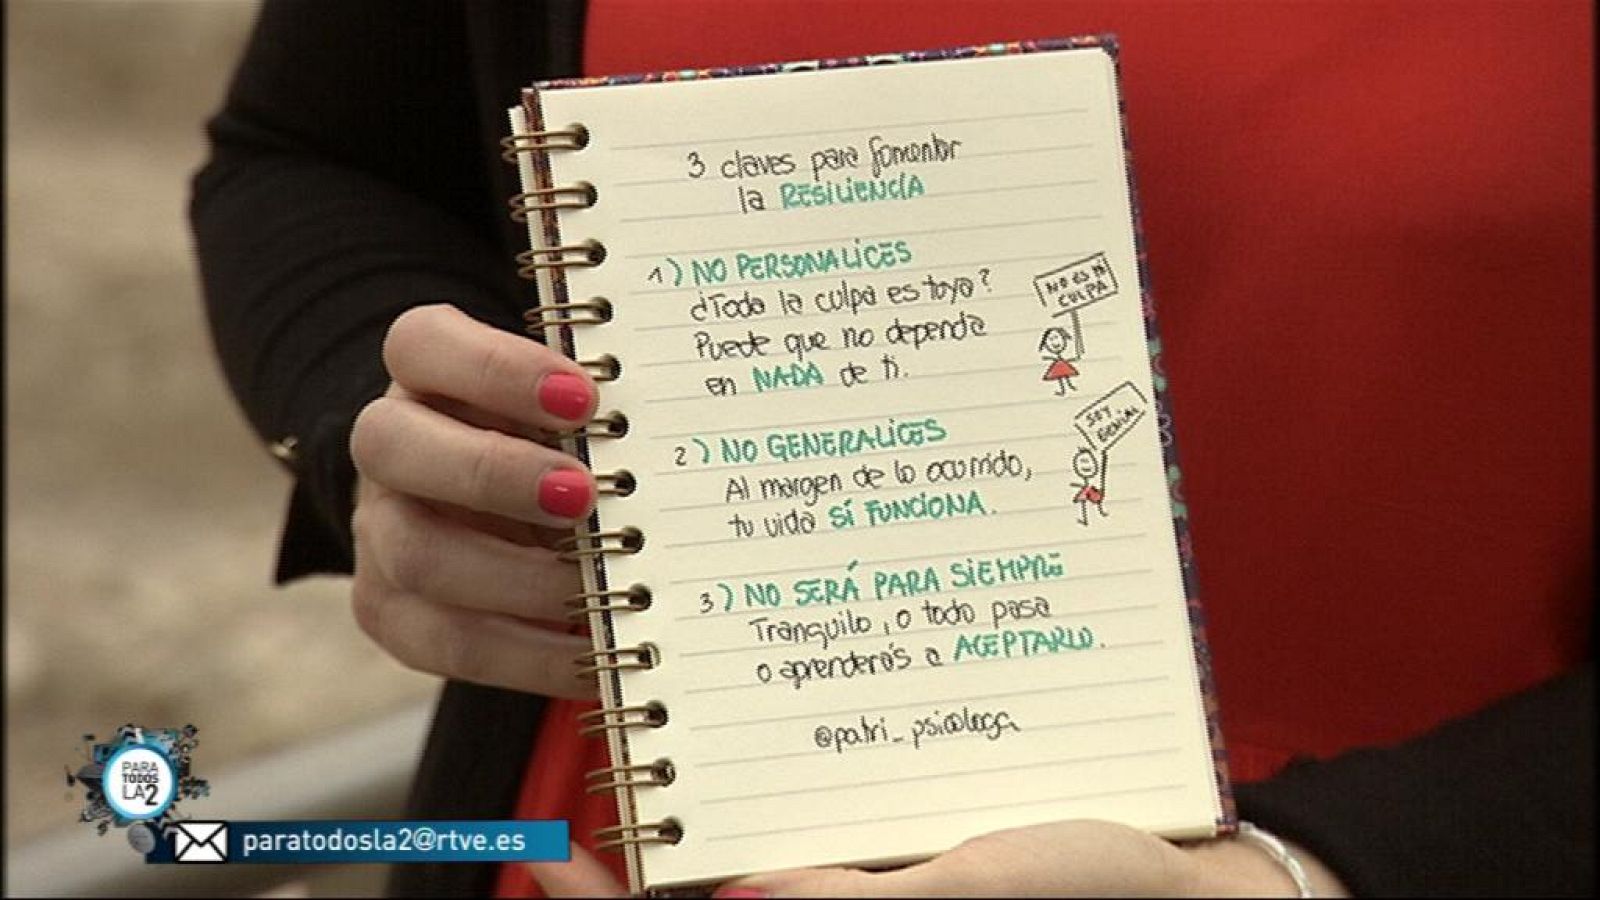 3 claves para fomentar
la RESILIENCIA
1) NO PERSONALICES
¿Toda la culpa es tuya?
Puede que no dependa
en NADA de ti.
NO ES MI
CULPA
2) NO GENERALICES
Al margen de lo ocurrido,
tu vida SÍ FUNCIONA.
SOY
GENIAL
3) NO SERÁ PARA SIEMPRE
Tranquilo, o todo pasa
o aprenderás a ACEPTARLO.
@patri_psicologa
PARA
TODOS
LA2
paratodosla2@rtve.es